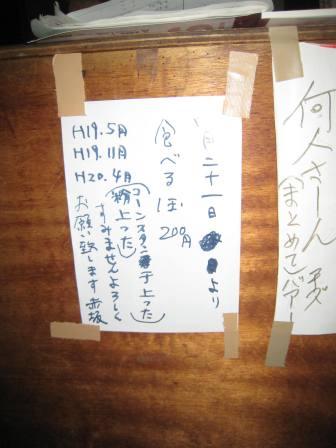 二十一日より
食べるほ
200円
H19.5月
H19.11月
H20.4月
(コーンスターチ上った)
(粉上った)
すみませんよろしく
お願い致します 赤坂
何人さーん
まとめて